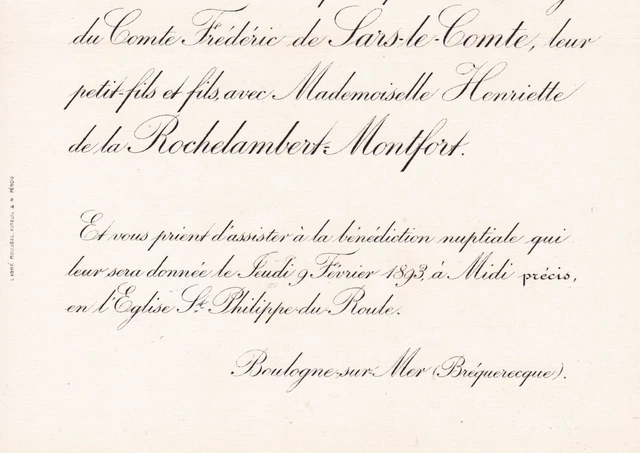 du Comte Frédéric de Sars-le-Comte, leur
petit-fils et fils, avec Mademoiselle Henriette
de la Rochelambert-Montfort.
Et vous prient d'assister à la bénédiction nuptiale qui
leur sera donnée le Jeudi 9 Février 1893, à Midi précis,
en l'Eglise St Philippe-du-Roule.
Boulogne-sur-Mer (Bréquerecque).